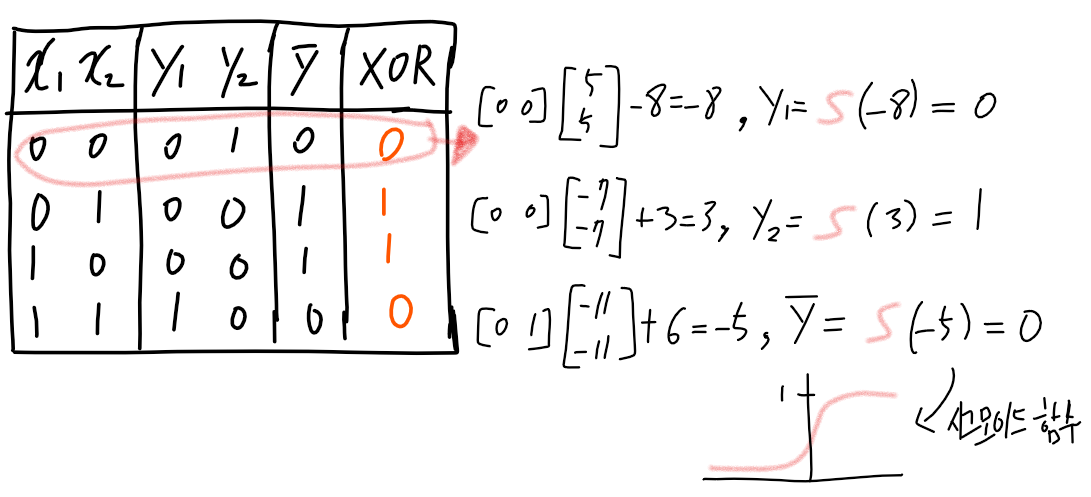 x₁ x₂ y₁ y₂ ȳ XOR
0 0 0 1 0 0
0 1 0 0 1 1
1 0 0 0 1 1
1 1 1 0 0 0
[0 0] [5 5] -8=-8, y₁= S(-8) = 0
[0 0] [-7 -7] +3=3, y₂= S(3) = 1
[0 1] [-11 -11] +6=-5, ȳ= S(-5) = 0
1
시그모이드 함수